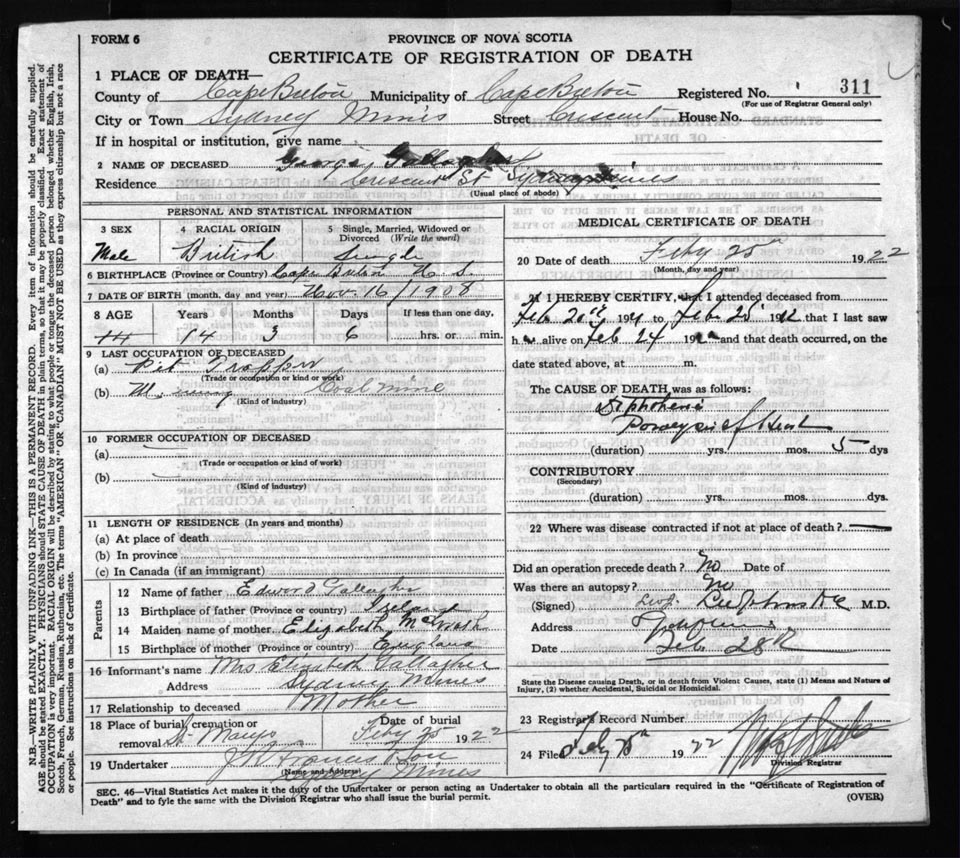 FORM 6
PROVINCE OF NOVA SCOTIA
CERTIFICATE OF REGISTRATION OF DEATH
1 PLACE OF DEATH—
County of Cape Breton Municipality of Cape Breton Registered No. 311
(For use of Registrar General only)
City or Town Sydney Mines Street Crescent House No.
If in hospital or institution, give name
2 NAME OF DECEASED George Gallagher
Residence Crescent St Sydney Mines
(Usual place of abode)
PERSONAL AND STATISTICAL INFORMATION
3 SEX 4 RACIAL ORIGIN 5 Single, Married, Widowed or Divorced (Write the word)
Male British Single
6 BIRTHPLACE (Province or Country) Cape Breton N. S.
7 DATE OF BIRTH (month, day and year) Nov. 16/1908
8 AGE Years Months Days If less than one day,
14 14 3 6 hrs. or min.
9 LAST OCCUPATION OF DECEASED
(a) Pit Trapper
(Trade or occupation or kind of work)
(b) Mining Coal mine
(Kind of industry)
10 FORMER OCCUPATION OF DECEASED
(a)
(Trade or occupation or kind of work)
(b)
(Kind of industry)
11 LENGTH OF RESIDENCE (In years and months)
(a) At place of death
(b) In province
(c) In Canada (if an immigrant)
Parents
12 Name of father Edward Gallagher
13 Birthplace of father (Province or country) Ireland
14 Maiden name of mother Elizabeth
15 Birthplace of mother (Province or country) England
16 Informant's name Mrs Elizabeth Gallagher
Address Sydney Mines
17 Relationship to deceased Mother
18 Place of burial, cremation or removal St Marys Date of burial Feby 25 1922
19 Undertaker
(Name and Address)
Sydney Mines
MEDICAL CERTIFICATE OF DEATH
20 Date of death Feby 25 1922
(Month, day and year)
21 I HEREBY CERTIFY, that I attended deceased from
Feb 20th 19 to Feb. 25 19 that I last saw
h alive on Feb 24 19 and that death occurred, on the
date stated above, at m.
The CAUSE OF DEATH was as follows:
Diphtheria
Paralysis of Heart
(duration) yrs. mos. 5 dys
CONTRIBUTORY
(Secondary)
(duration) yrs. mos. dys.
22 Where was disease contracted if not at place of death?
Did an operation precede death? No Date of
Was there an autopsy? No
(Signed) M.D.
Address
Date Feb 28th
State the Disease causing Death, or in Death from Violent Causes, state (1) Means and Nature of Injury, (2) whether Accidental, Suicidal or Homicidal.
23 Registrar's Record Number
24 Filed Feby 1922
Division Registrar
SEC. 46—Vital Statistics Act makes it the duty of the Undertaker or person acting as Undertaker to obtain all the particulars required in the "Certificate of Registration of
Death" and to fyle the same with the Division Registrar who shall issue the burial permit. (OVER)
N.B.—WRITE PLAINLY, WITH UNFADING INK—THIS IS A PERMANENT RECORD. Every item of information should be carefully supplied.
AGE should be stated EXACTLY. PHYSICIANS should STATE CAUSE OF DEATH in plain terms, so that it may be properly classified. Exact statement of
OCCUPATION is very important. RACIAL ORIGIN will be described by stating to what people or tongue the deceased person belonged whether English, Irish,
Scotch, French, German, Russian, Ruthenian, etc. The terms "AMERICAN" OR "CANADIAN" MUST NOT BE USED as they express citizenship but not a race
or people. See instructions on back of Certificate.